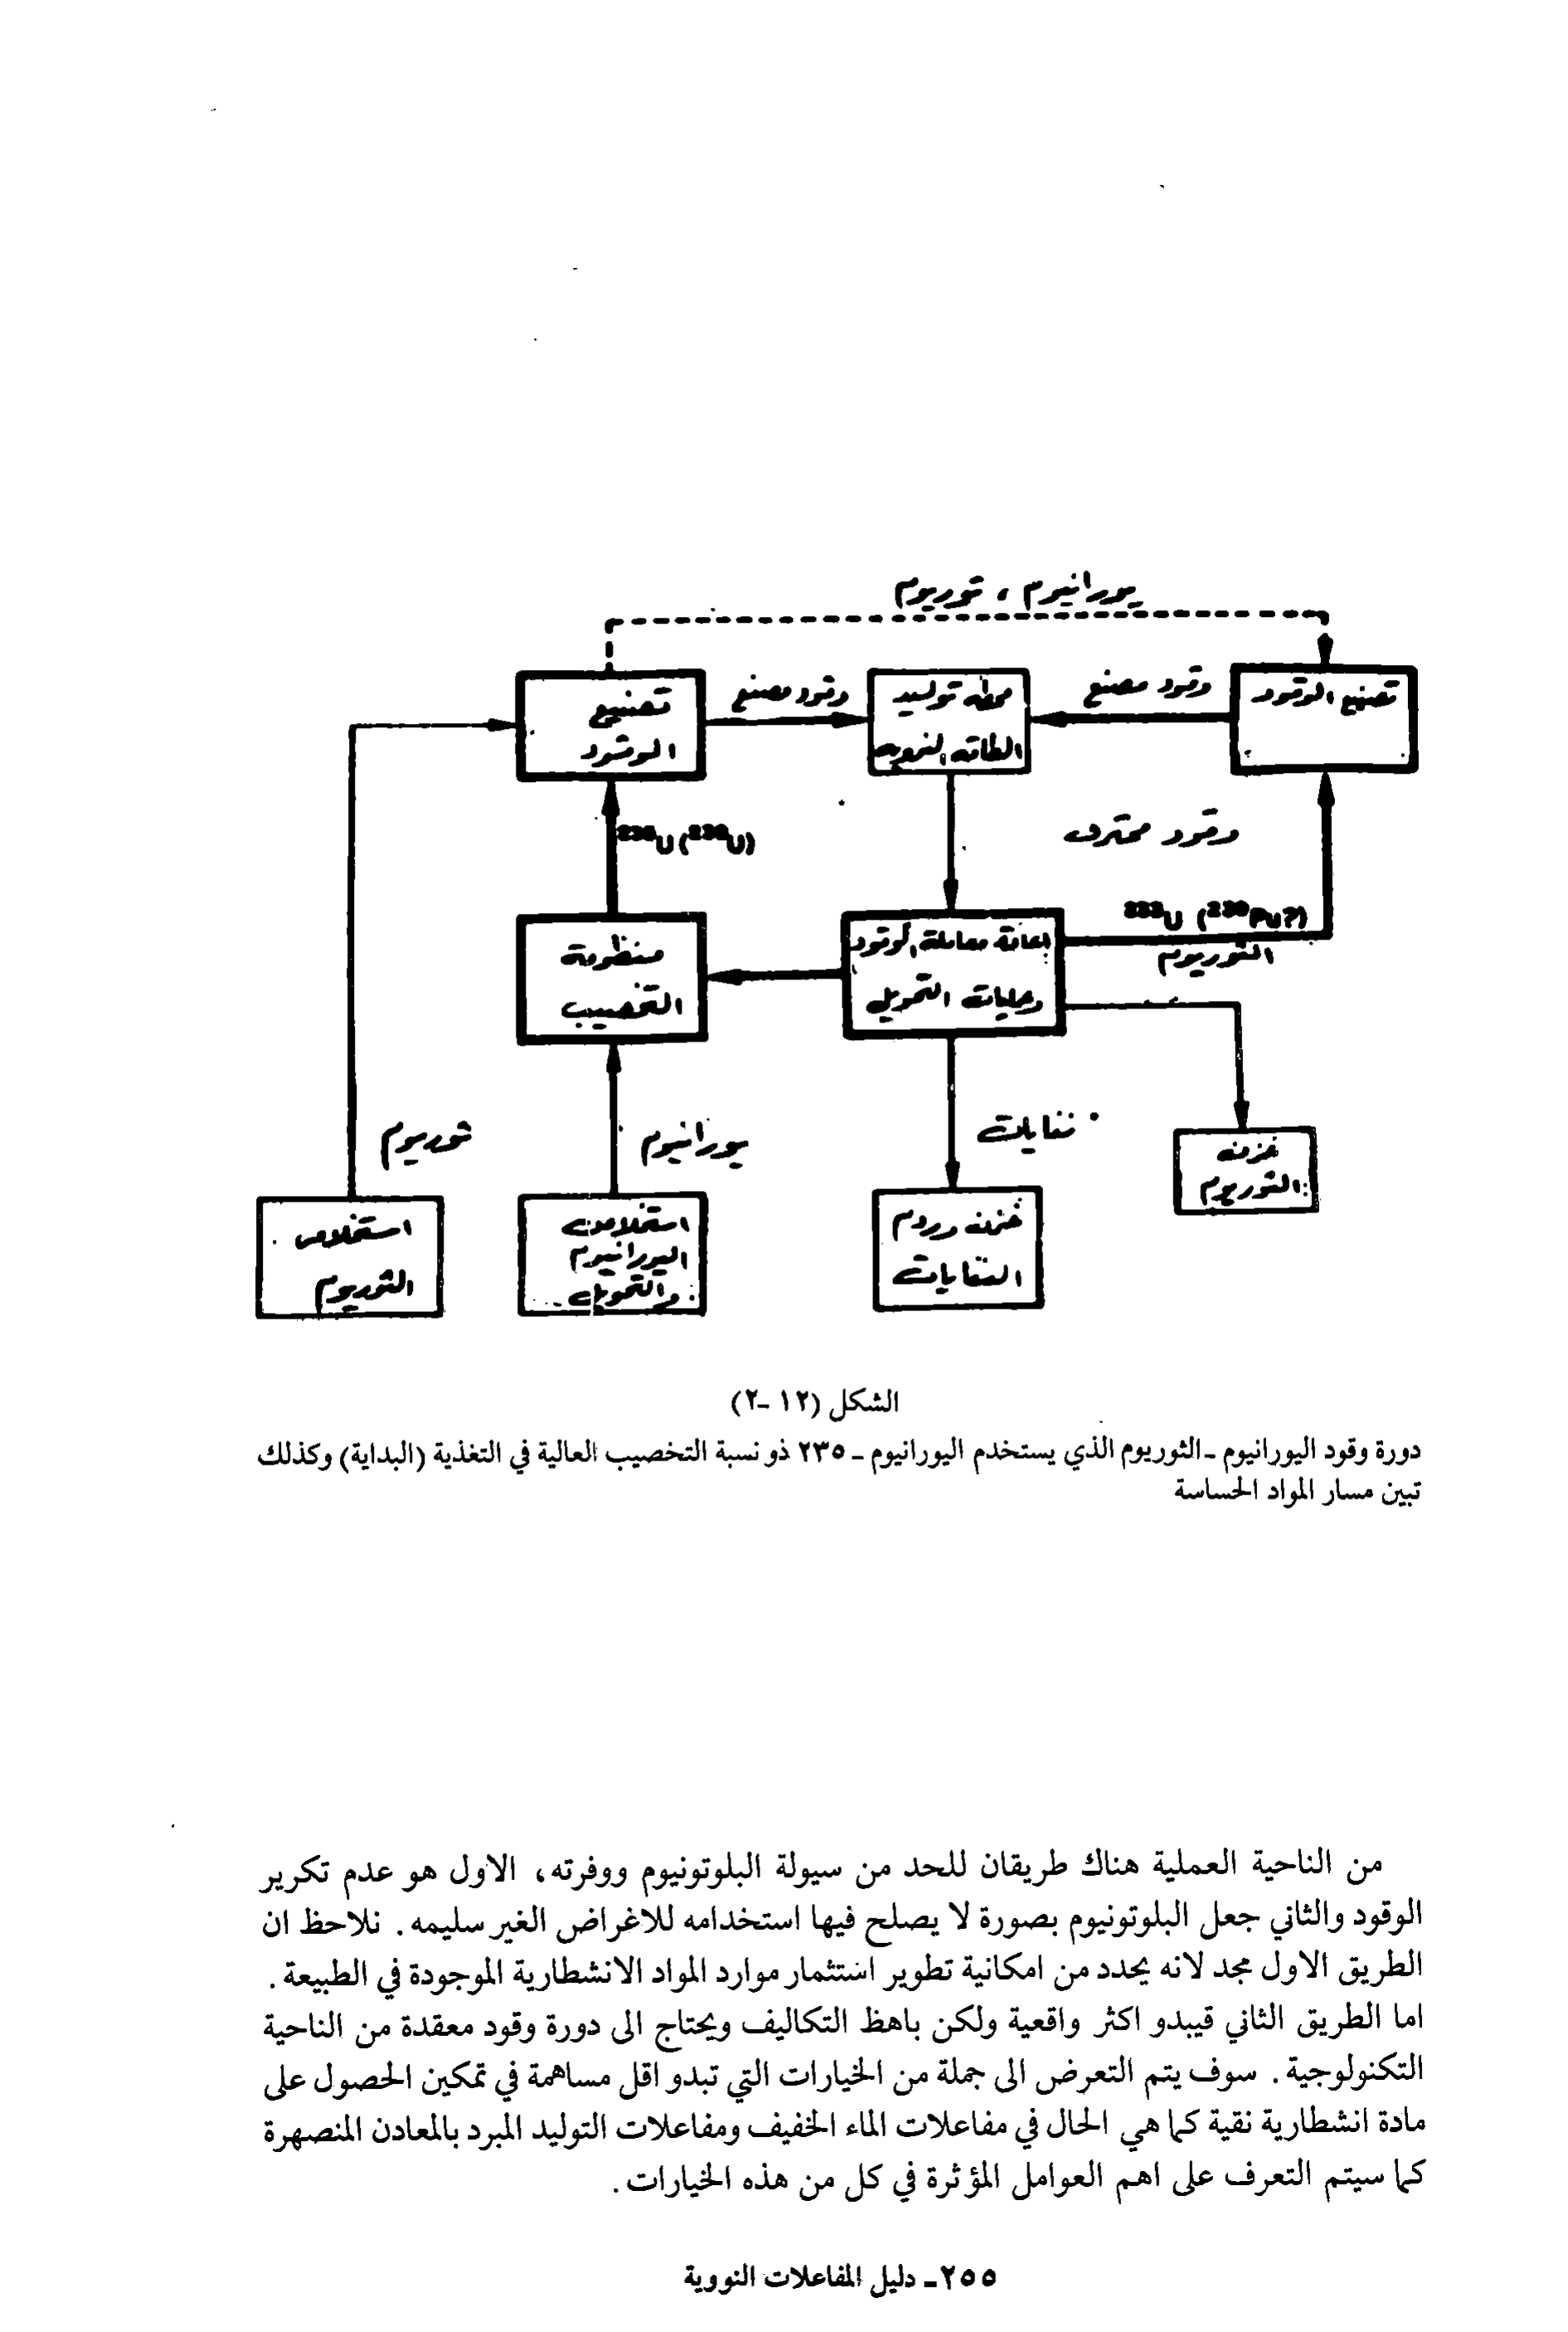 يورانيوم ، ثوريوم
تصنيع الوقود
وقود مصنع
محطة توليد
الطاقة النووية
وقود مصنع
تصنيع
الوقود
وقود محترق
(U²³⁸) U²³⁵
²³³U (²³⁹Pu?)
الثوريوم
اعادة معاملة الوقود
وعمليات التحويل
منظومة
التخصيب
نفايات
يورانيوم
ثوريوم
خزن
الثوريوم
خزن وردم
النفايات
استخلاص
اليورانيوم
والتحويل
استخلاص
الثوريوم
الشكل (١٢ -٢)
دورة وقود اليورانيوم -الثوريوم الذي يستخدم اليورانيوم - ٢٣٥ ذو نسبة التخصيب العالية في التغذية (البداية) وكذلك
تبين مسار المواد الحساسة
من الناحية العملية هناك طريقان للحد من سيولة البلوتونيوم ووفرته، الاول هو عدم تكرير
الوقود والثاني جعل البلوتونيوم بصورة لا يصلح فيها استخدامه للاغراض الغير سليمه . نلاحظ ان
الطريق الاول مجد لانه يحدد من امكانية تطوير استثمار موارد المواد الانشطارية الموجودة في الطبيعة .
اما الطريق الثاني قيبدو اكثر واقعية ولكن باهظ التكاليف ويحتاج الى دورة وقود معقدة من الناحية
التكنولوجية . سوف يتم التعرض الى جملة من الخيارات التي تبدو اقل مساهمة في تمكين الحصول على
مادة انشطارية نقية كما هي الحال في مفاعلات الماء الخفيف ومفاعلات التوليد المبرد بالمعادن المنصهرة
كما سيتم التعرف على اهم العوامل المؤثرة في كل من هذه الخيارات .
٢٥٥ - دليل المفاعلات النووية